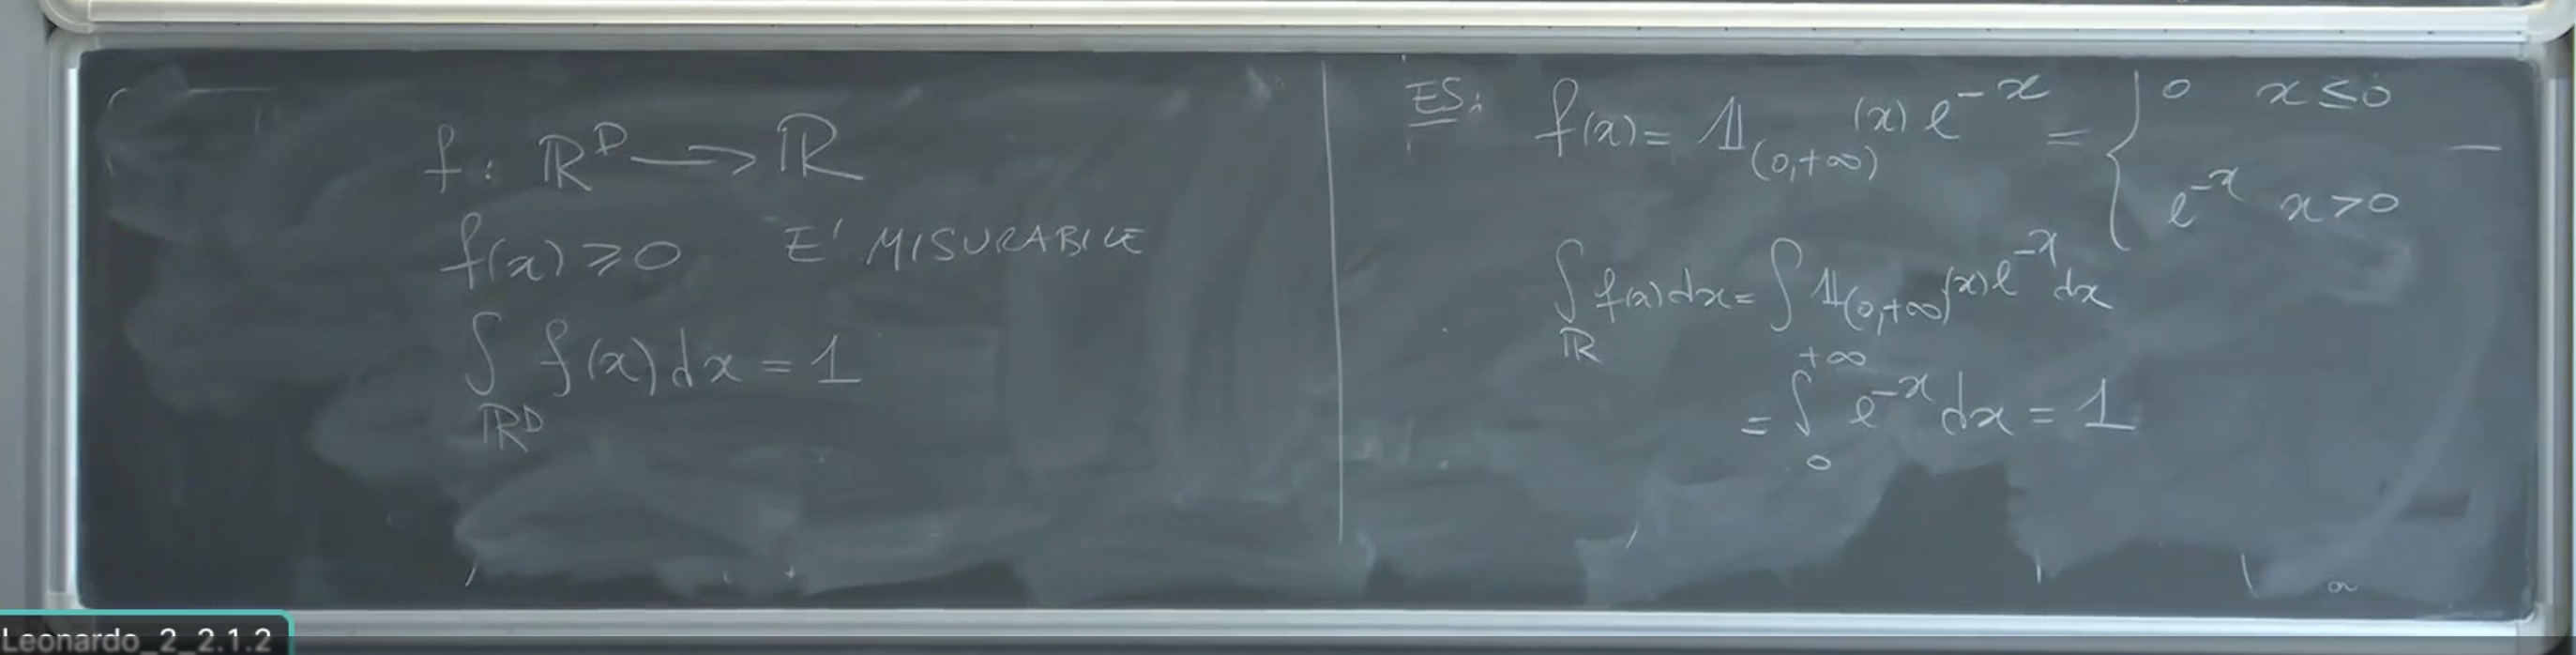 f : ℝᴰ ⟶ ℝ
f(x) ≥ 0 E' MISURABILE
∫_{ℝᴰ} f(x) dx = 1
ES: f(x) = 𝟙_{(0,+∞)}(x) e^{-x} = { 0 x ≤ 0
e^{-x} x > 0
∫_ℝ f(x) dx = ∫ 𝟙_{(0,+∞)}(x) e^{-x} dx
= ∫_0^{+∞} e^{-x} dx = 1
Leonardo_2_2.1.2